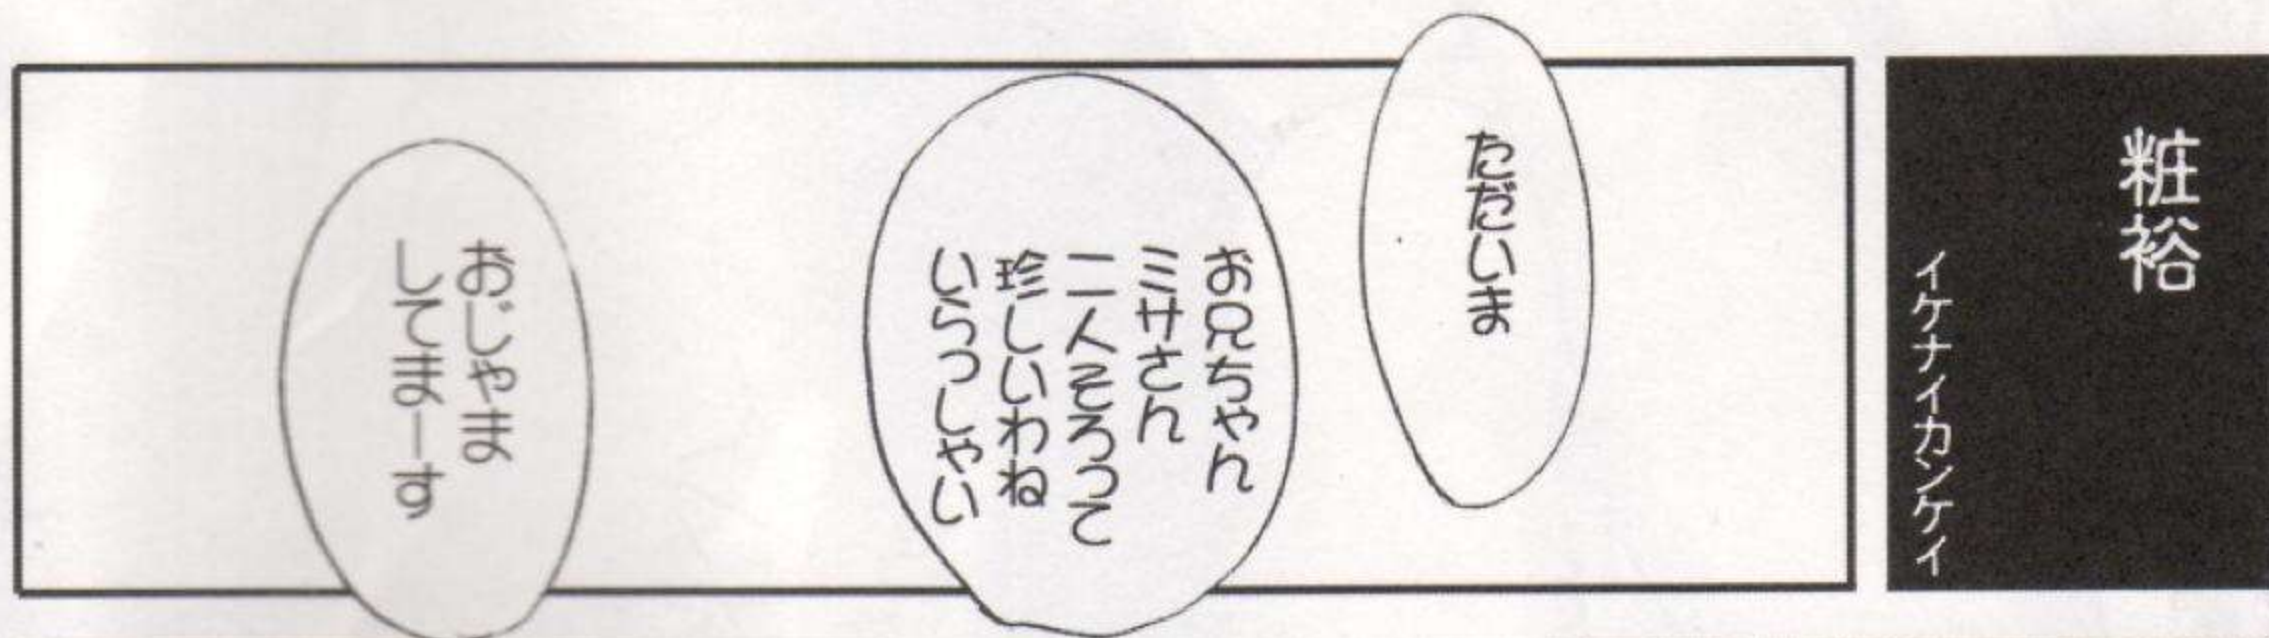 粧裕
イケナイカンケイ
ただいま
お兄ちゃん
ミサさん
二人そろって
珍しいわね
いらっしゃい
おじゃま
してまーす